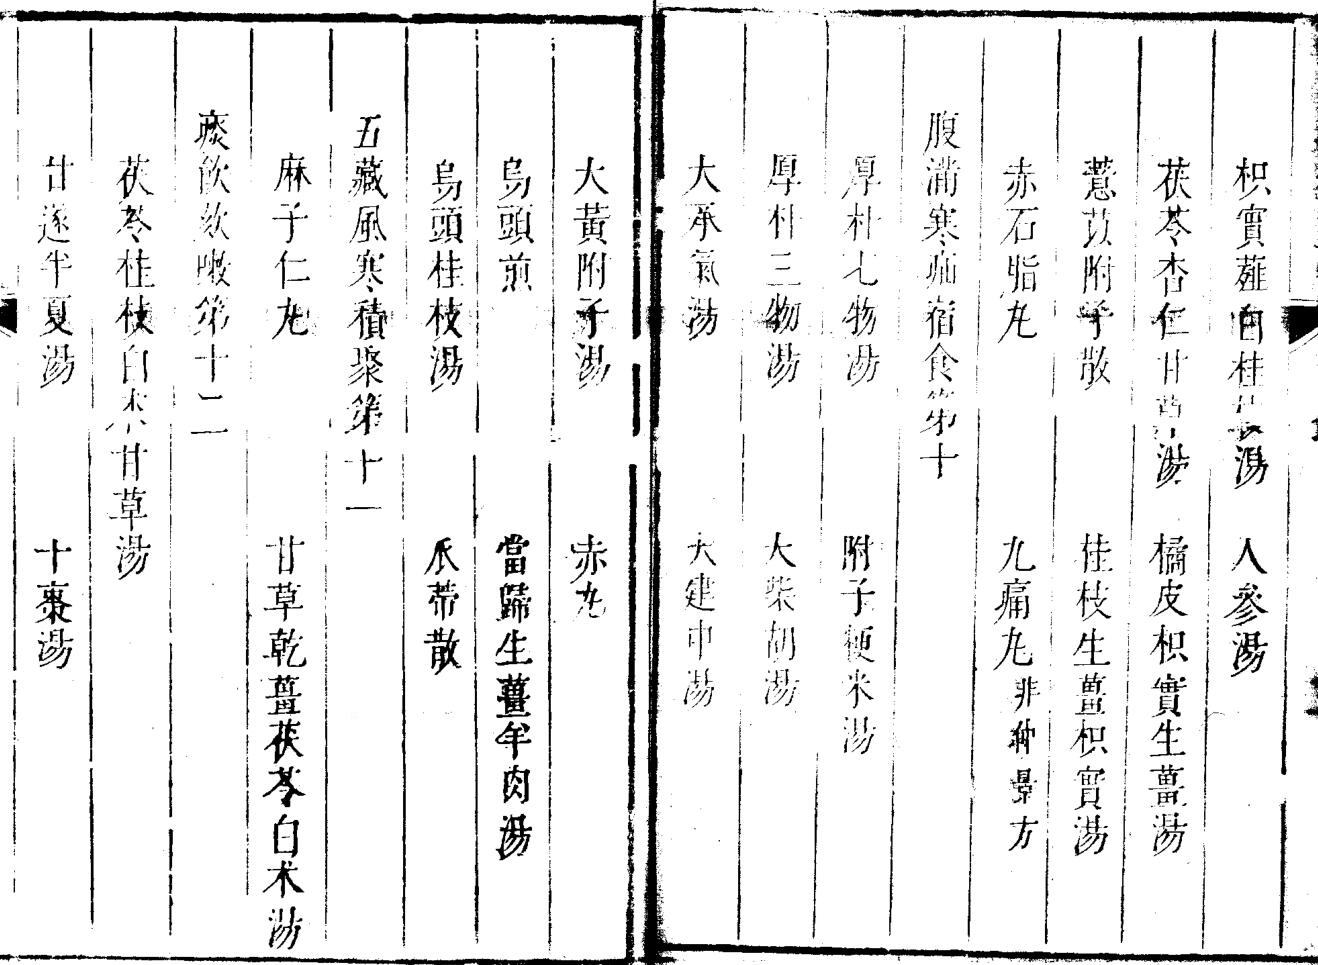 枳實薤白桂枝湯　人參湯
茯苓杏仁甘草湯　橘皮枳實生薑湯
薏苡附子散　桂枝生薑枳實湯
赤石脂丸　九痛丸非仲景方
腹滿寒疝宿食第十
厚朴七物湯　附子粳米湯
厚朴三物湯　大柴胡湯
大承氣湯　大建中湯
大黃附子湯　赤丸
烏頭煎　當歸生薑羊肉湯
烏頭桂枝湯　瓜蒂散
五藏風寒積聚第十一
麻子仁丸　甘草乾薑茯苓白术湯
痰飲欬嗽第十二
茯苓桂枝白术甘草湯
甘遂半夏湯　十棗湯